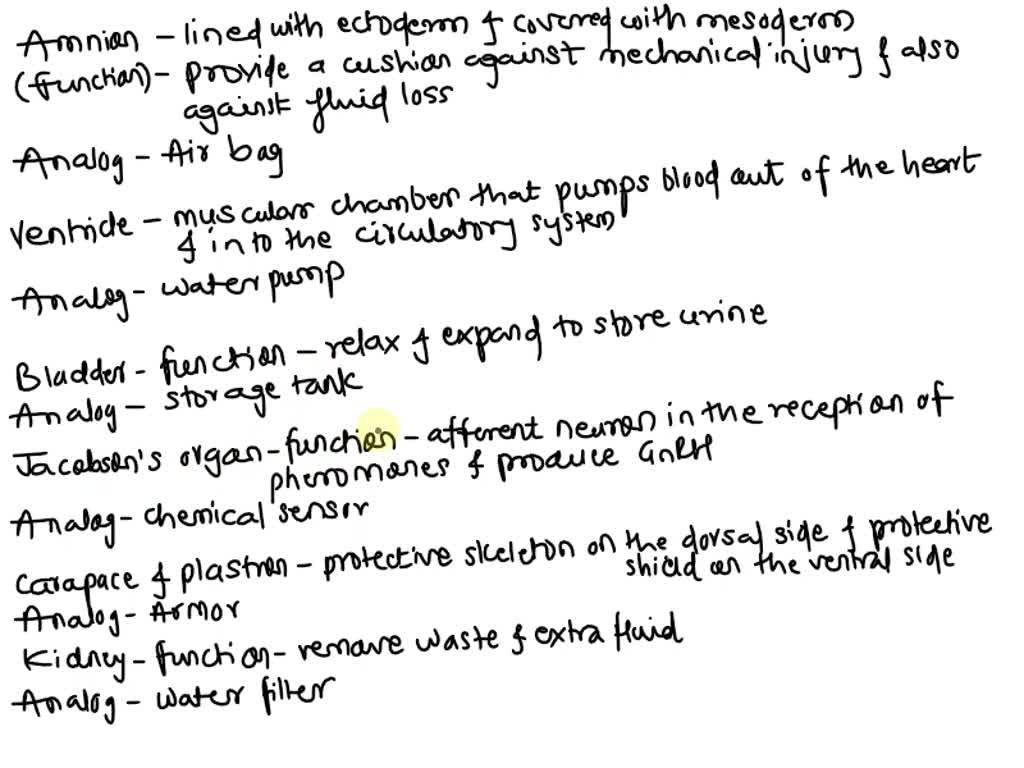 Amnion - lined with ectoderm & covered with mesoderm
(function) - provide a cushion against mechanical injury & also
against fluid loss
Analog - Air bag
Ventricle - muscular chamber that pumps blood out of the heart
& in to the circulatory system
Analog - water pump
Bladder - function - relax & expand to store urine
Analog - storage tank
Jacobson's organ - function - afferent neuron in the reception of
pheromones & produce GnRH
Analog - chemical sensor
carapace & plastron - protective skeleton on the dorsal side & protective
shield on the ventral side
Analog - Armor
Kidney - function - remove waste & extra fluid
Analog - water filter